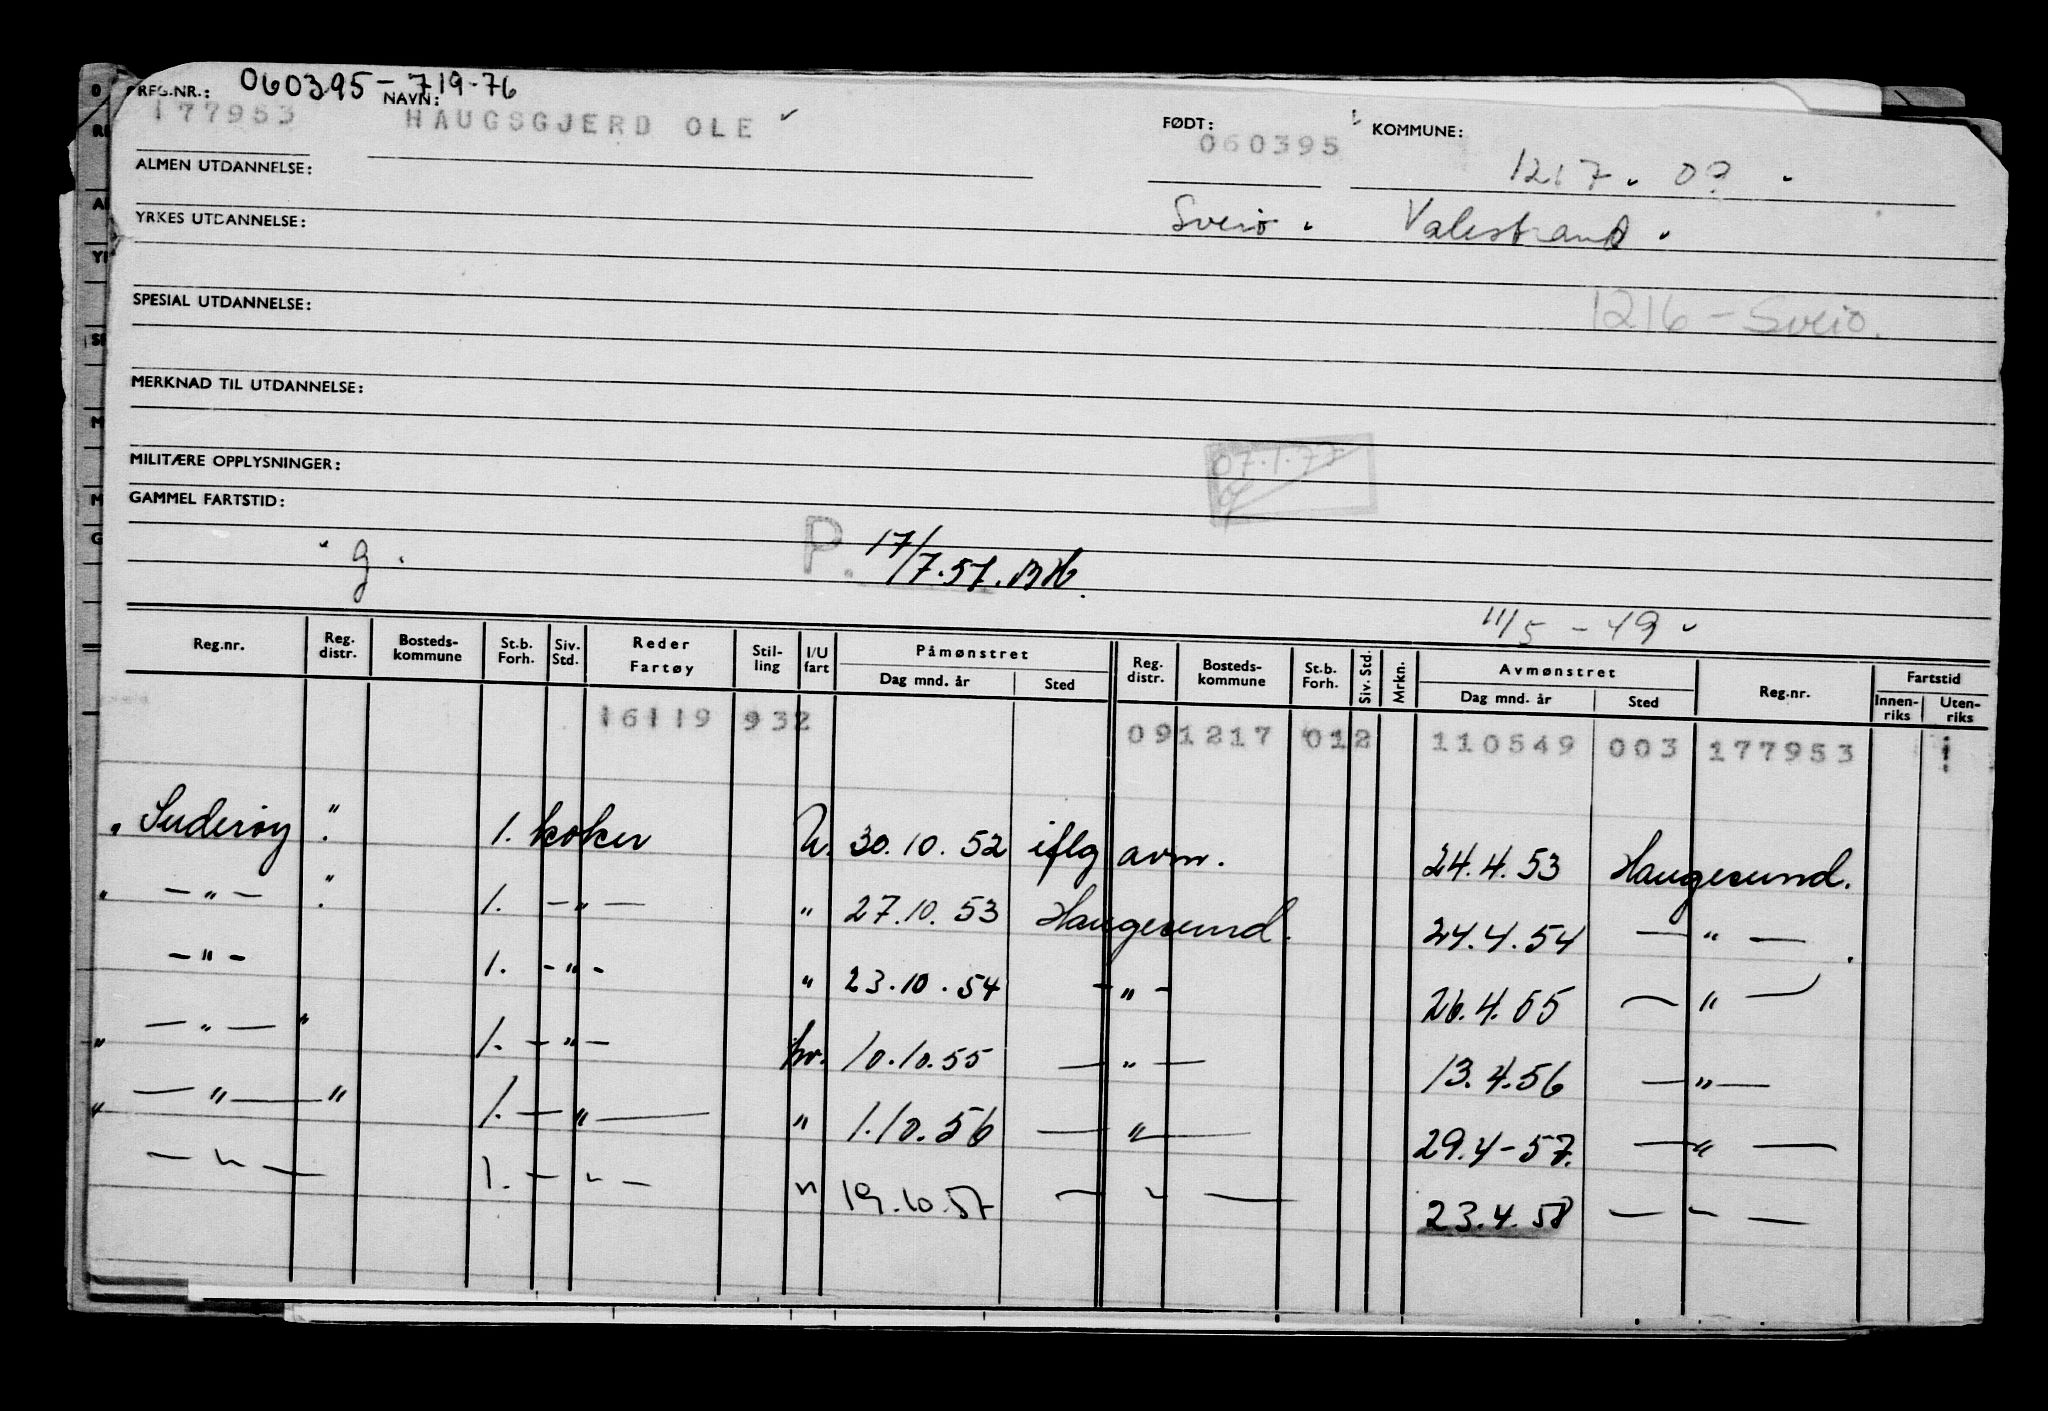 REG.NR.: 060395-719-76
NAVN:
177953 HAUGSGJERD OLE
FØDT: KOMMUNE:
060395 1217. 0?
ALMEN UTDANNELSE:
Sveio. Valestrand.
YRKES UTDANNELSE:
SPESIAL UTDANNELSE: 1216 - Sveio.
MERKNAD TIL UTDANNELSE:
MILITÆRE OPPLYSNINGER: 07.1.77
GAMMEL FARTSTID:
g. P. 17/7.57.
11/5 - 49
Reg.nr. Reg. distr. Bosteds-kommune St.b. Forh. Siv. Std. Reder Fartøy Stil-ling I/U fart Påmønstret Dag mnd. år Sted Reg. distr. Bosteds-kommune St.b. Forh. Siv. Std. Mrkn. Avmønstret Dag mnd. år Sted Reg.nr. Fartstid Innen-riks Uten-riks
16119 932 091217 012 110549 003 177953
" Suderøy " 1. koker U. 30.10.52 iflg avm. 24.4.53 Haugesund.
" - " - " 1. - " - " 27.10.53 Haugesund. 24.4.54 - " -
- " - 1. - " - " 23.10.54 - " - 26.4.55 - " -
" - " - " 1. - " - hv. 10.10.55 - " - 13.4.56 - " -
" - " - " 1. - " - " 1.10.56 - " - 29.4-57. - " -
- " - 1. - " - " 19.10.57 - " - 23.4.58 - " -